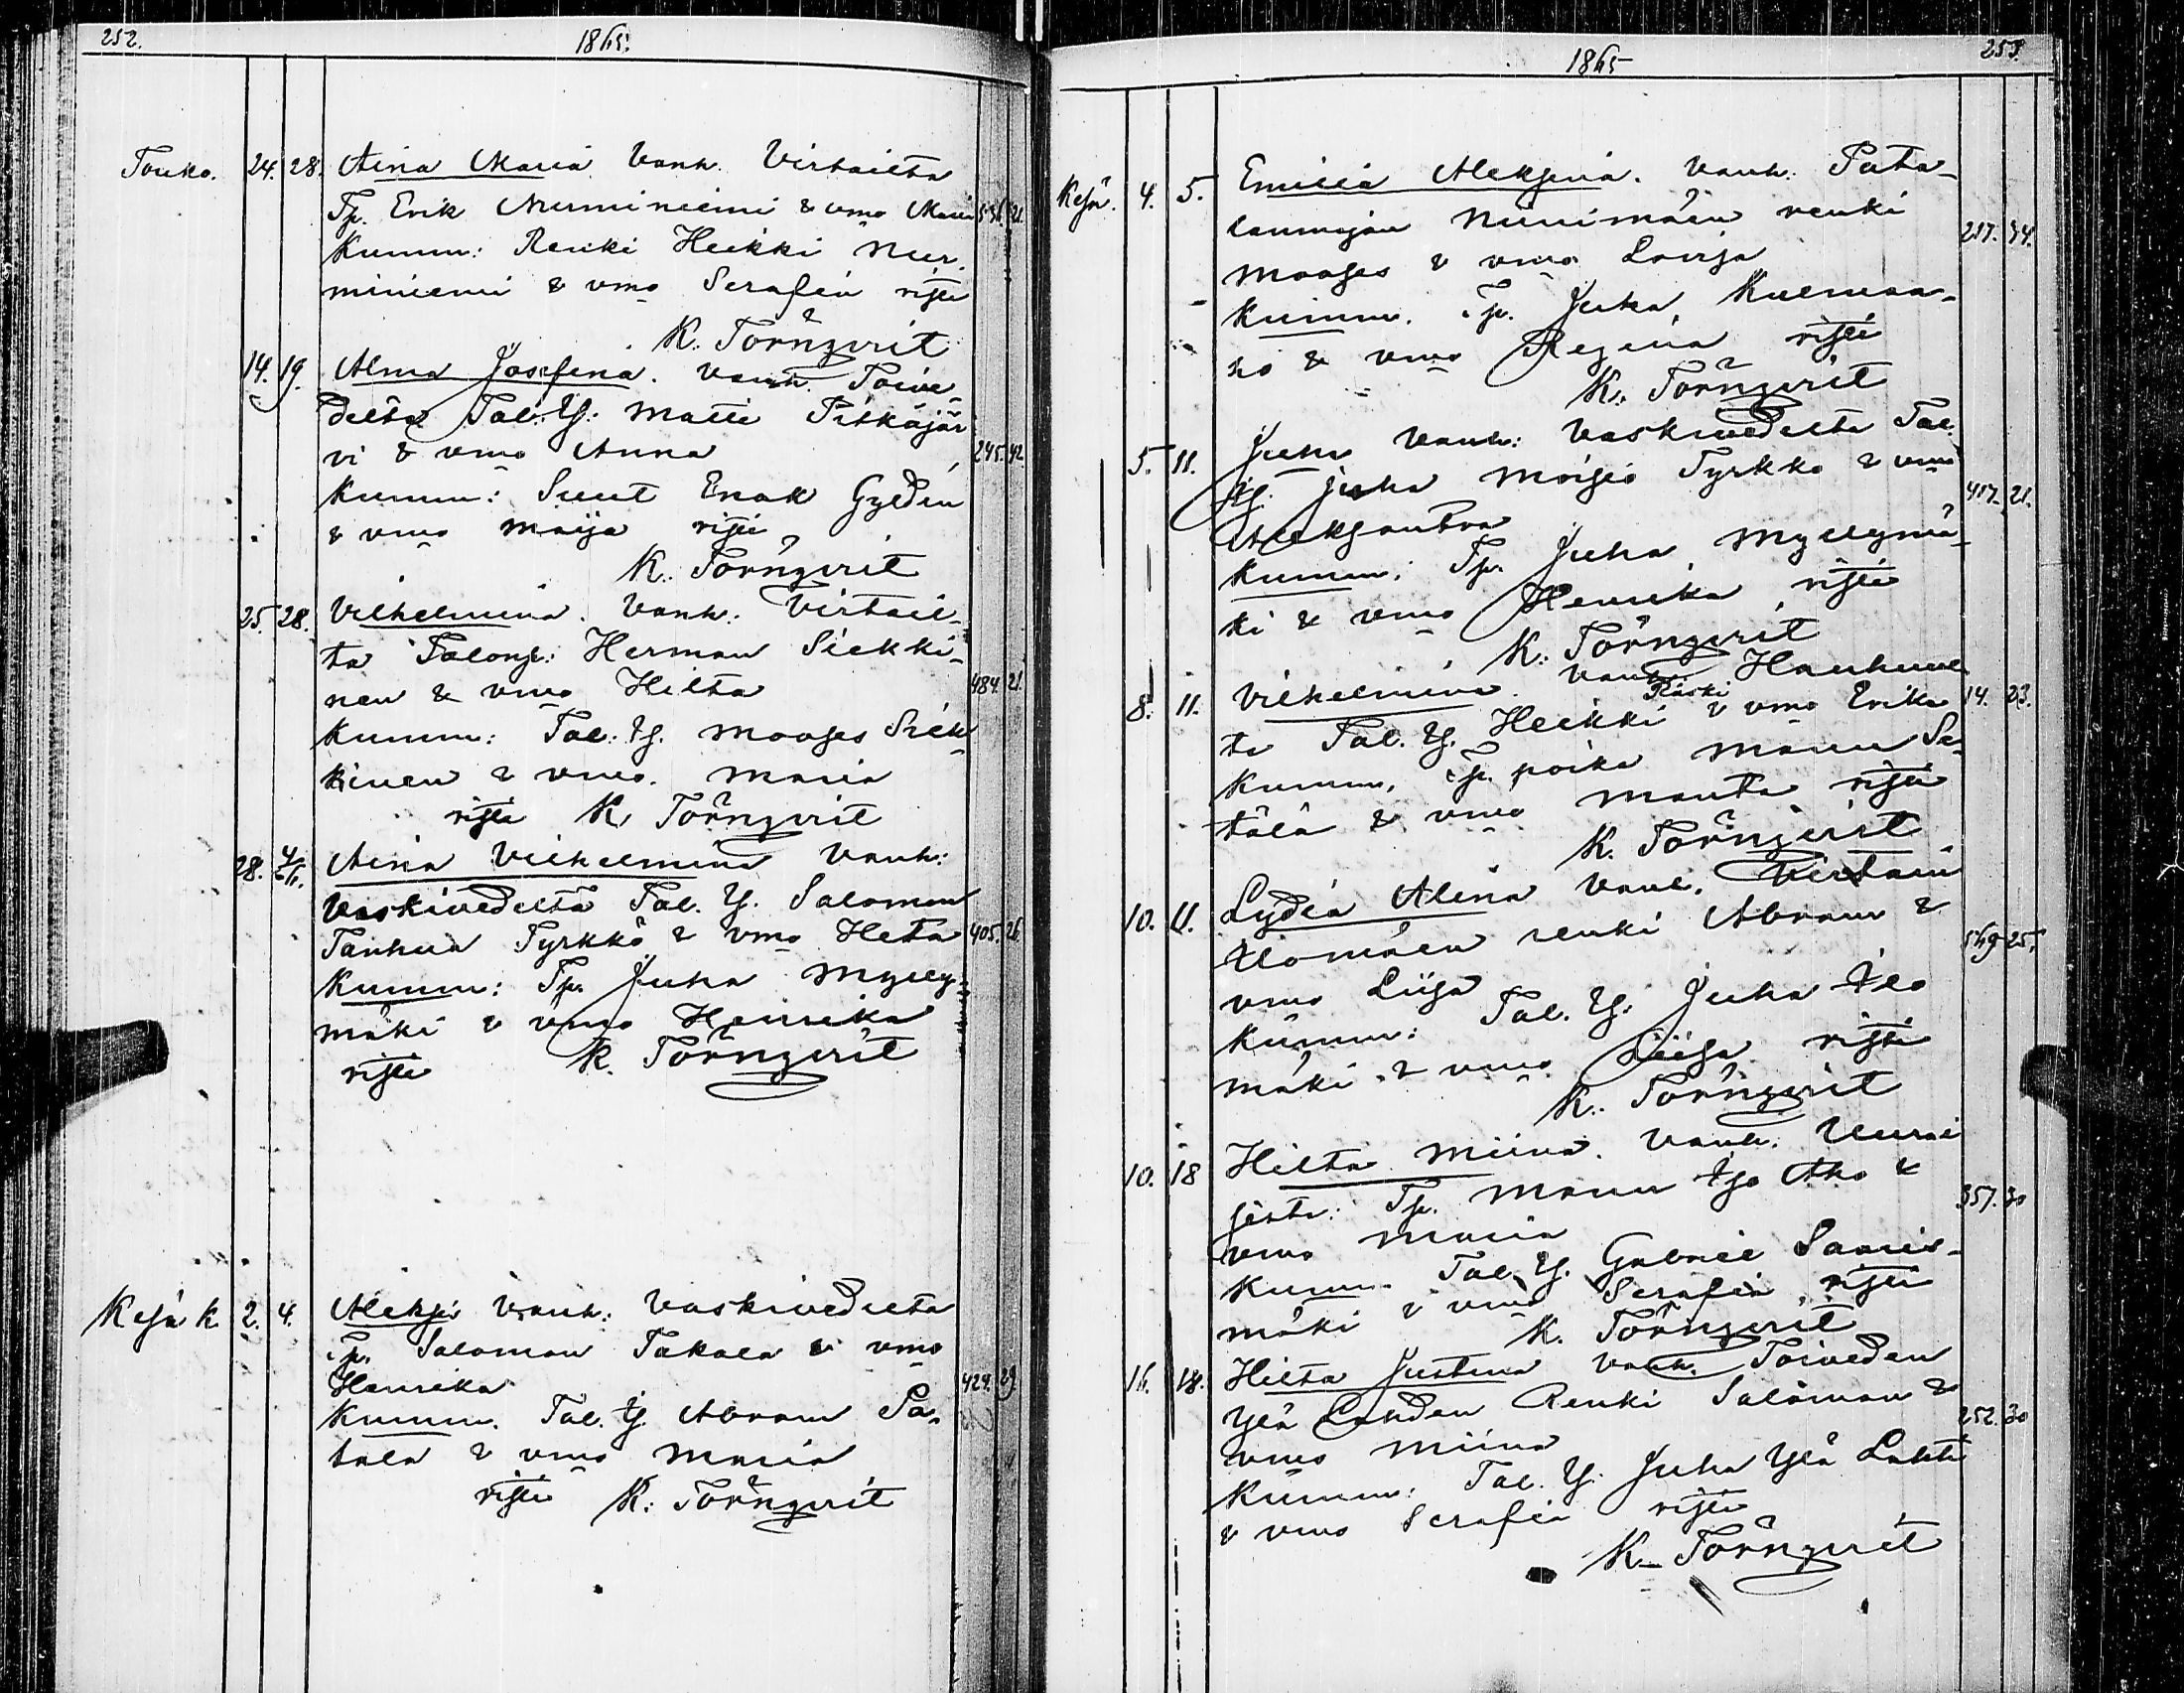 252.
1865.
Touko. 24. 28. Aina Maria Vanh. Virtailta
Tp. Erik Nurminiemi & vmo Maria 536. 21.
Kumm: Renki Heikki Nur-
miniemi & vmo Serafia risti
K. Törnqvist
14. 19. Alma Josefina. Vanh. Toive-
delta Tal. Ij. Matti Pitkäjär
vi & vmo Anna 245. 42.
Kumm: Suut Enok Gyldén
& vmo Maija risti
K. Törnqvist
25. 28. Vilhelmina. Vanh: Virtail-
ta Talonp: Herman Siekki-
nen & vmo Hilta 484. 21.
Kumm: Tal. Ij. Mooses Siek
kinen & vmo. Maria
risti K. Törnqvist
28. 4/6. Aina Vilhelmina Vanh:
Vaskivedeltä Tal. Ij. Salomon
Tanhua Tyrkkö & vmo Heta 405. 26.
Kumm: Tp. Juha Mylly-
mäki & vmo Henrika
risti K. Törnqvist
Kesä k. 2. 4. Aleksi Vanh: Vaskivedelta
Tp. Salomon Takala & vmo
Henrika 424. 29.
Kumm. Tal. Ij. Abram Pa-
tala & vmo Maria
risti K. Törnqvist
1865
253.
Kesä. 4. 5. Emilia Aleksina. Vanh. Pata-
lanmajan Niinimäen renki
Mooses & vmo Lovisa 217. 34.
Kumm. Tp. Juha Kulmaa-
ho & vmo Regina risti
K. Törnqvist
5. 11. Juho Vanh: Vaskivedelta Tal.
Ij. Juha Moisio Tyrkkö & vmo
Aleksantra 417. 21.
Kumm: Tp. Juha Myllymä-
ki & vmo Henrika risti
K. Törnqvist
8. 11. Vilhelmina. Vanh. Hauhuul
ta Tal. Ij. Heikki Räski & vmo Erika 14. 23.
Kumm. Tp. poika Manu Sa-
tälä & vmo Manta risti
K. Törnqvist
10. 11. Lydia Alina Vanh. Virtain
Ilomäen renki Abram &
vmo Liisa 569 25.
Kumm: Tal. Ij. Juha Ilo
mäki & vmo Liisa risti
K. Törnqvist
10. 18 Hilta Miina. Vanh. Uurai
sista: Tp. Manu Iso Aho &
vmo Maria 357. 30
Kumm. Tal. Ij. Gabriel Saaris-
mäki & vmo Serafia risti
K. Törnqvist
16. 18. Hilta Justina Vanh. Toiveden
Ylä Lahden Renki Salomon &
vmo Miina 252. 30
Kumm: Tal. Ij. Juha Ylä Lahti
& vmo Serafia risti
K. Törnqvist